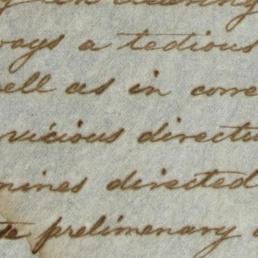 ways a tedious
ell as in corre
vicious directi
mines directed
te prelimenary